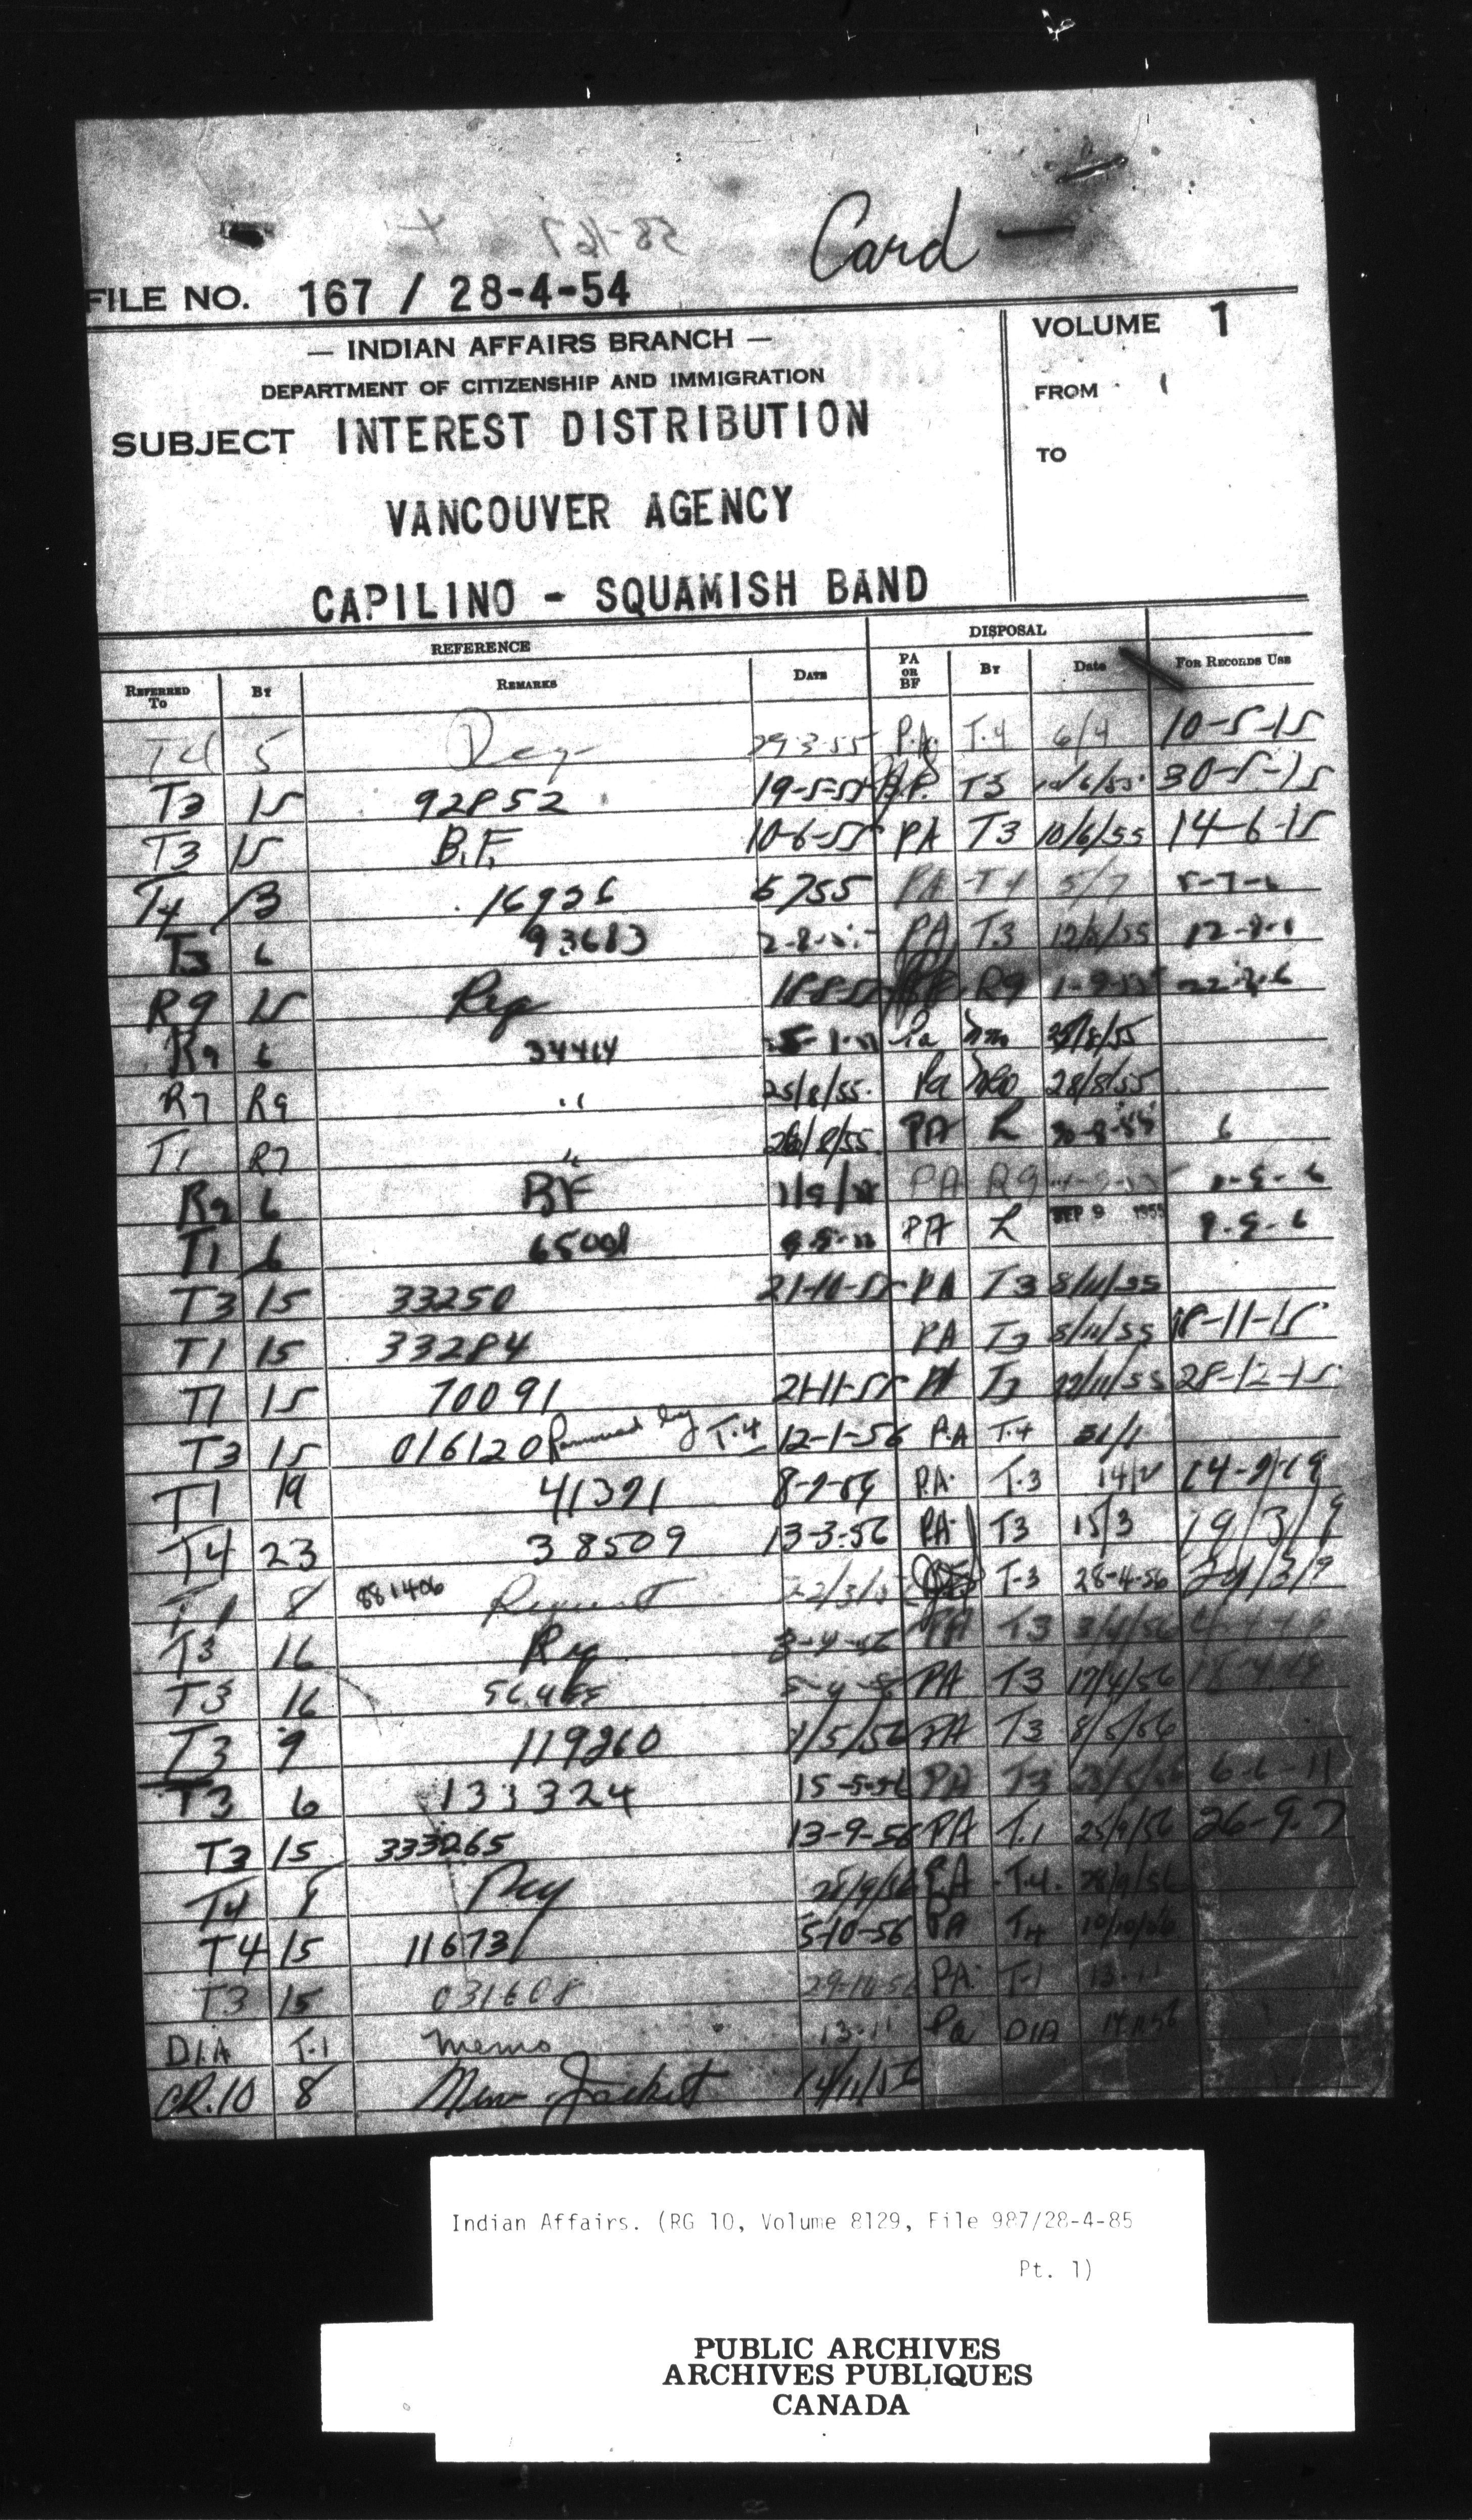 Card —
FILE NO. 167 / 28-4-54
— INDIAN AFFAIRS BRANCH —
DEPARTMENT OF CITIZENSHIP AND IMMIGRATION
SUBJECT INTEREST DISTRIBUTION
VANCOUVER AGENCY
CAPILINO - SQUAMISH BAND
VOLUME 1
FROM
TO
REFERENCE DISPOSAL
REFERRED TO BY REMARKS DATE PA OR BF BY DATE FOR RECORDS USE
T4 5 Req 29-3-55 P.A. T.4 6/4 10-5-15
T3 15 92852 19-5-55 T3 30-5-15
T3 15 B.F. 10-6-55 PA T3 10/6/55 14-6-15
T4 13 16926 5755 PA T4 5/7 5-7-6
T3 6 93613 PA T3 12/8/55
R9 15 Req 18-8-55 R9
R9 6 34414 Pa
R7 R9 " 25/8/55 Pa 28/8/55
T1 R7 " 26/8/55 PA L 30-8-55 6
R9 6 BF 1/9/55 PA R9
T1 6 65001 PA L SEP 9 1955 9-9-6
T3 15 33250 21-10-55 PA T3 8/11/55
T1 15 33284 PA T3 8/11/55 18-11-15
T1 15 70091 21-11-55 PA T3 22/11/55 28-12-15
T3 15 016120 by T.4 12-1-56 P.A T.4 31/1
T1 19 41391 8-2-56 P.A. T.3 14/2 14-2-19
T4 23 38509 13-3-56 P.A. T3 15/3 19/3/9
T1 8 881406 Request 22/3/5 T-3 28-4-56
T3 16 Req 3-4-56 PA T3 3/4/56
T3 16 PA T3 17/4/56
T3 9 119260 1/5/56 PA T3 8/5/56
T3 6 133324 15-5-56 PA T3 6-6-11
T3 15 333265 13-9-56 PA T.1 25/9/56 26-9-7
T4 8 Req 25/9/56 PA T.4. 28/9/56
T4 15 116731 5-10-56 PA T4 10/10/56
T3 15 031608 29-10-56 PA. T-1 13-11
DIA T.1 memo 13-11 Pa DIA 14 11 56
CR.10 8 New Jacket 14/11/56
Indian Affairs. (RG 10, Volume 8129, File 987/28-4-85
Pt. 1)
PUBLIC ARCHIVES
ARCHIVES PUBLIQUES
CANADA